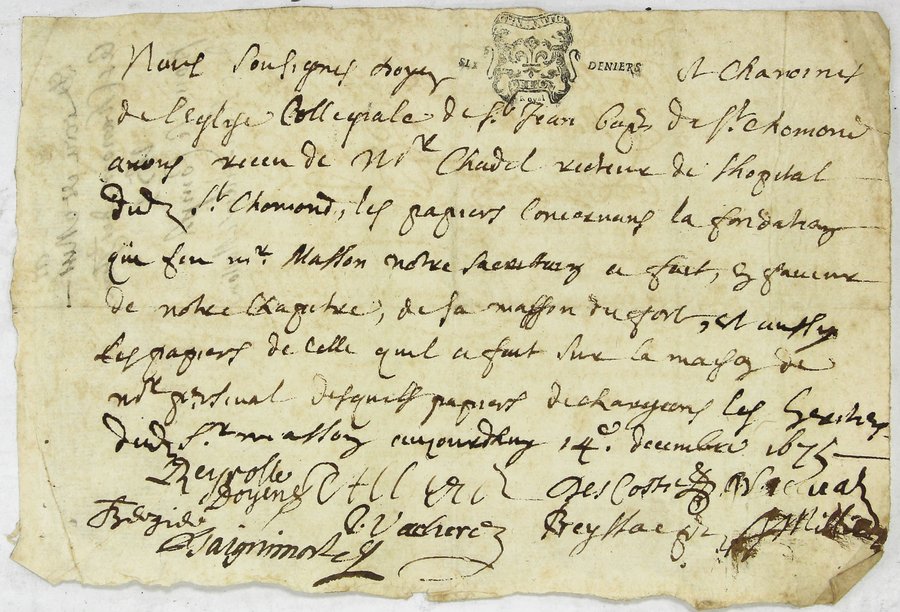 SIX DENIERS
Nous sousignes doyen et Chanoines
de leglise Collegiale de St. Jean bapt. de St. Chomond
auons receu de Mr Chadel recteur de lhopital
dud. St. Chomond, les papiers Concernans la fondation
que feu mr. Masson notre sacristain a fait, en faueur
de notre Chapitre, de sa maison du fort, et aussy
les papiers de celle quil a fait sur la maison de
mr perseual desquels papiers dechargeons les heritiers
dud. Sr. masson aujourdhuy 14e. decembre 1675
Reyrolle
Doyen Descostes
P. Vacherer